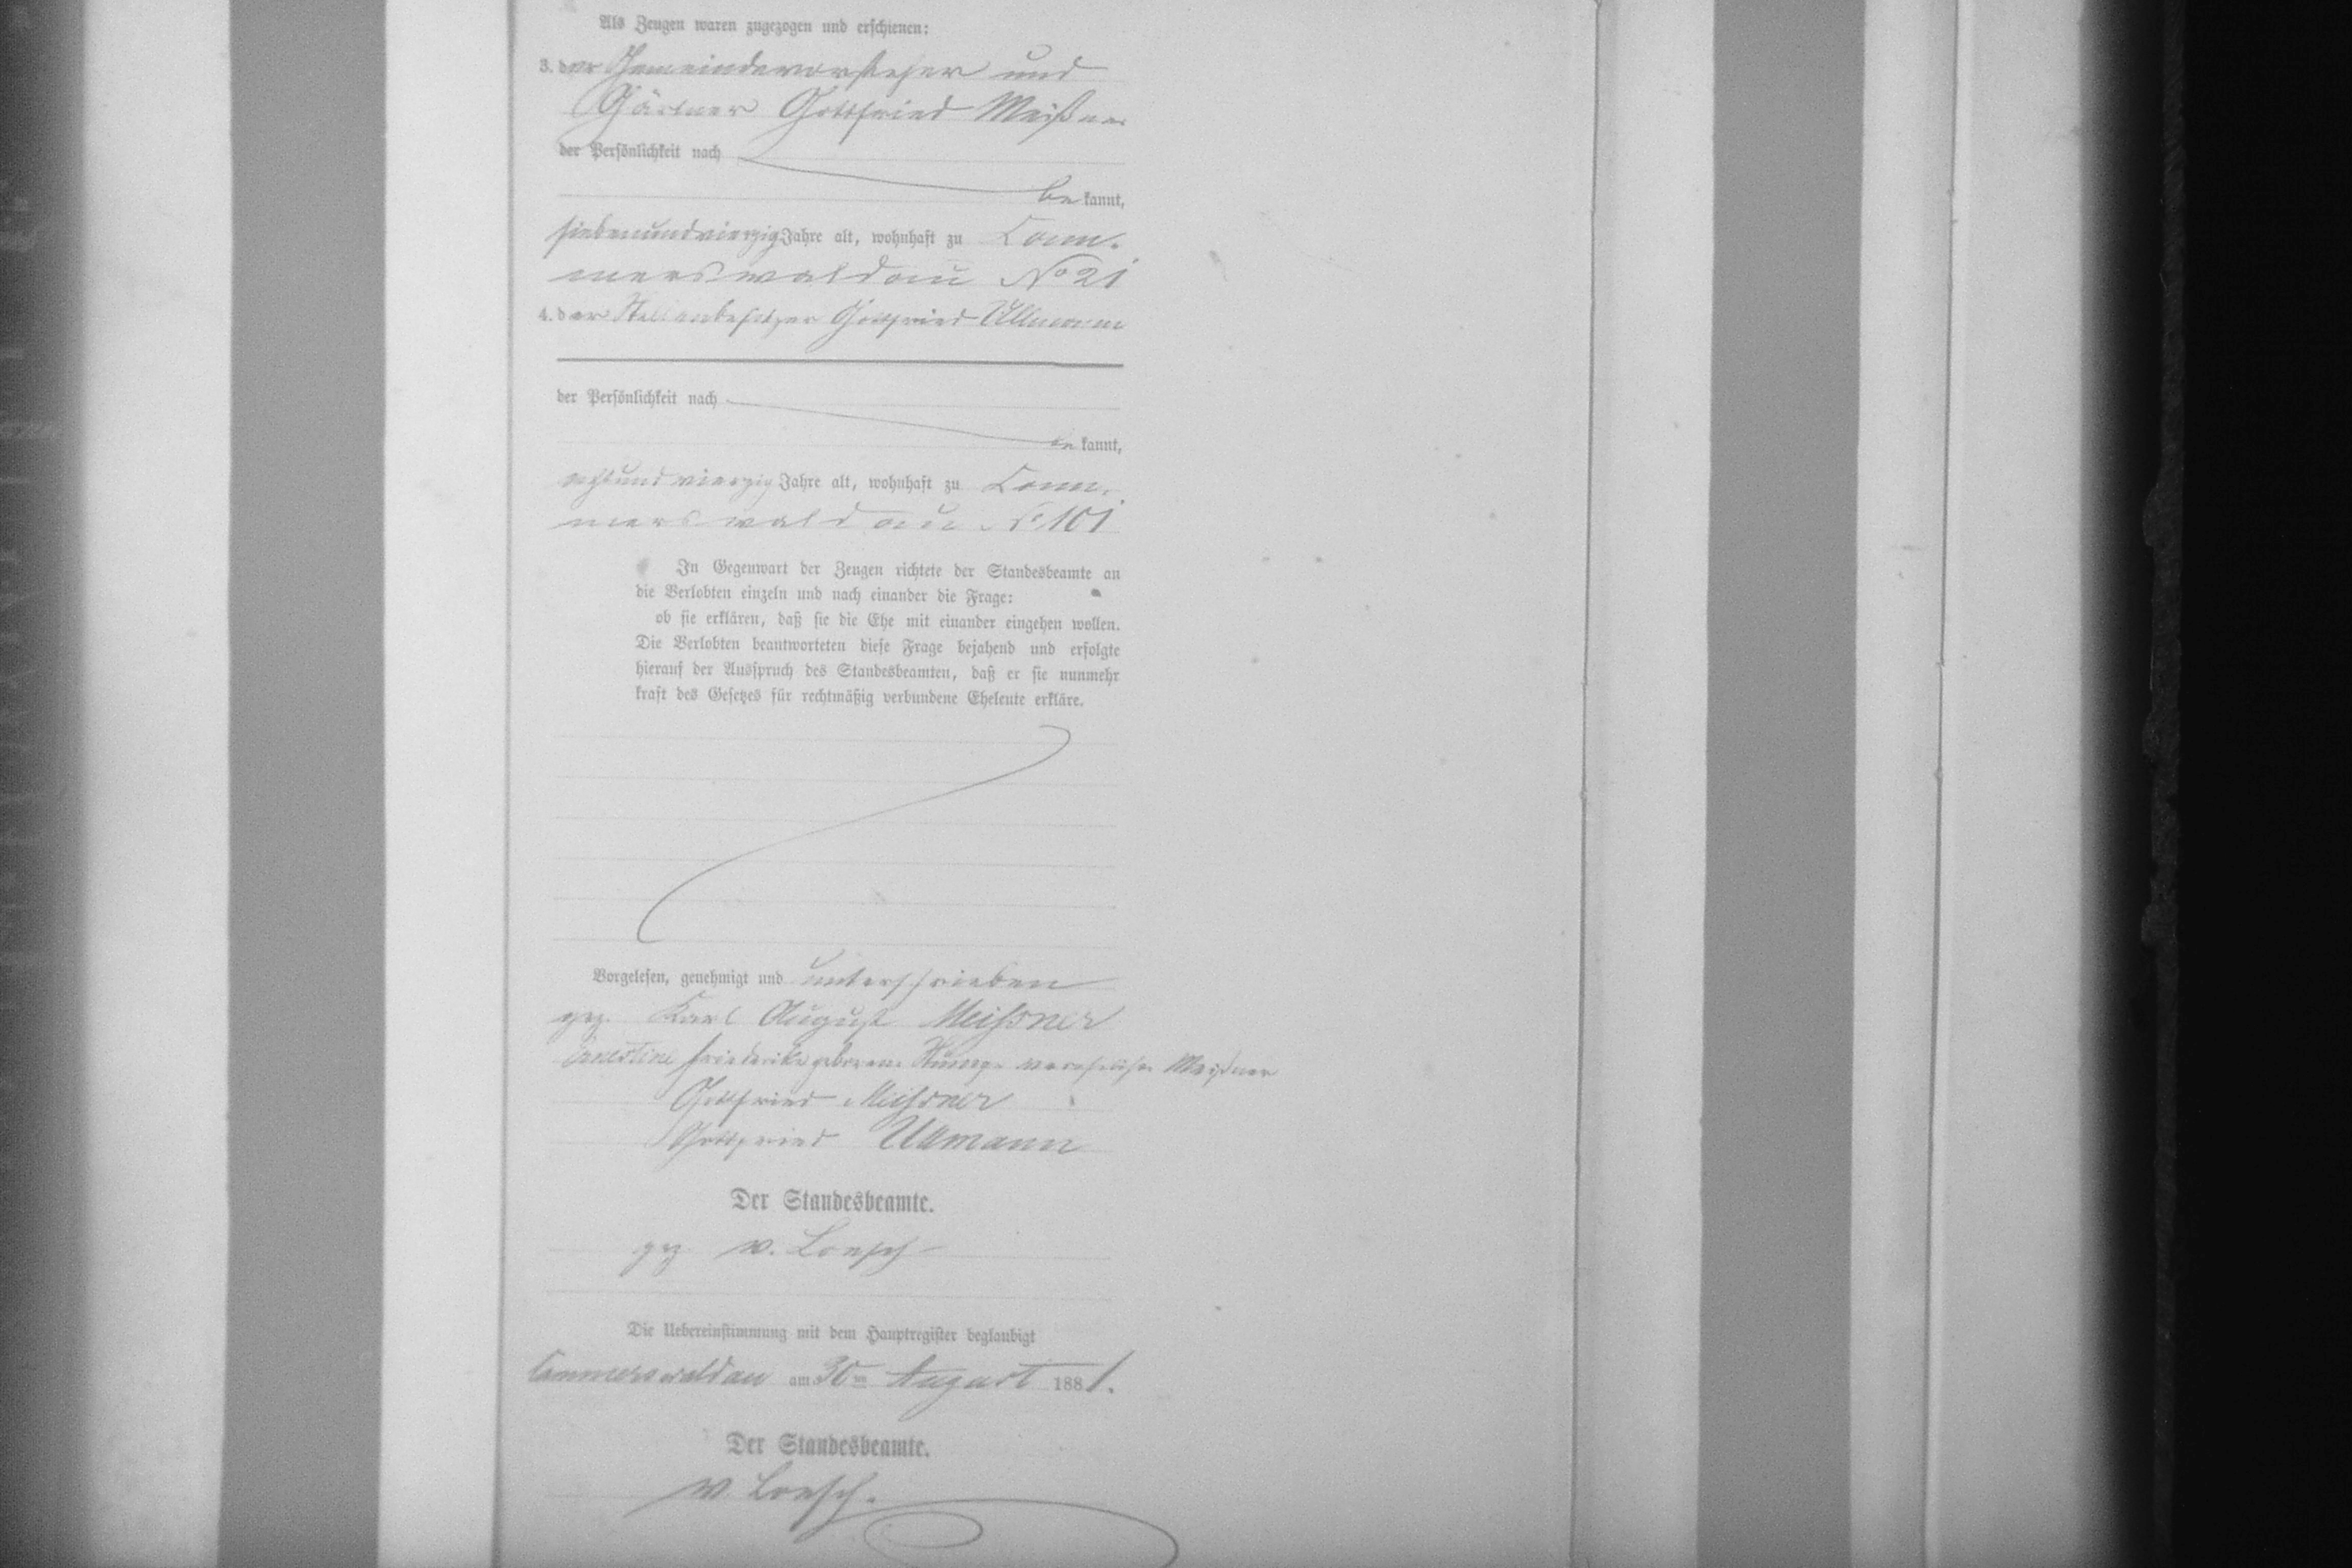 Als Zeugen waren zugezogen und erschienen:
3. der Gemeindevorsteher und
Gärtner Gottfried Meißner
der Persönlichkeit nach
be kannt,
siebenundvierzig Jahre alt, wohnhaft zu Cam-
merswaldau No 21
4. der Stellenbesitzer Gottfried Ullmann
der Persönlichkeit nach
be kannt,
achtundvierzig Jahre alt, wohnhaft zu Cam-
merswaldau No 101
In Gegenwart der Zeugen richtete der Standesbeamte an
die Verlobten einzeln und nach einander die Frage:
ob sie erklären, daß sie die Ehe mit einander eingehen wollen.
Die Verlobten beantworteten diese Frage bejahend und erfolgte
hierauf der Ausspruch des Standesbeamten, daß er sie nunmehr
kraft des Gesetzes für rechtmäßig verbundene Eheleute erkläre.
Vorgelesen, genehmigt und unterschrieben
gez. Karl August Meißner
Ernestine Friederike geborene verehelichte Meißner
Gottfried Meißner
Gottfried Ullmann
Der Standesbeamte.
gez v. Loesch
Die Uebereinstimmung mit dem Hauptregister beglaubigt
Cammerswaldau am 30ten August 1881.
Der Standesbeamte.
v. Loesch.